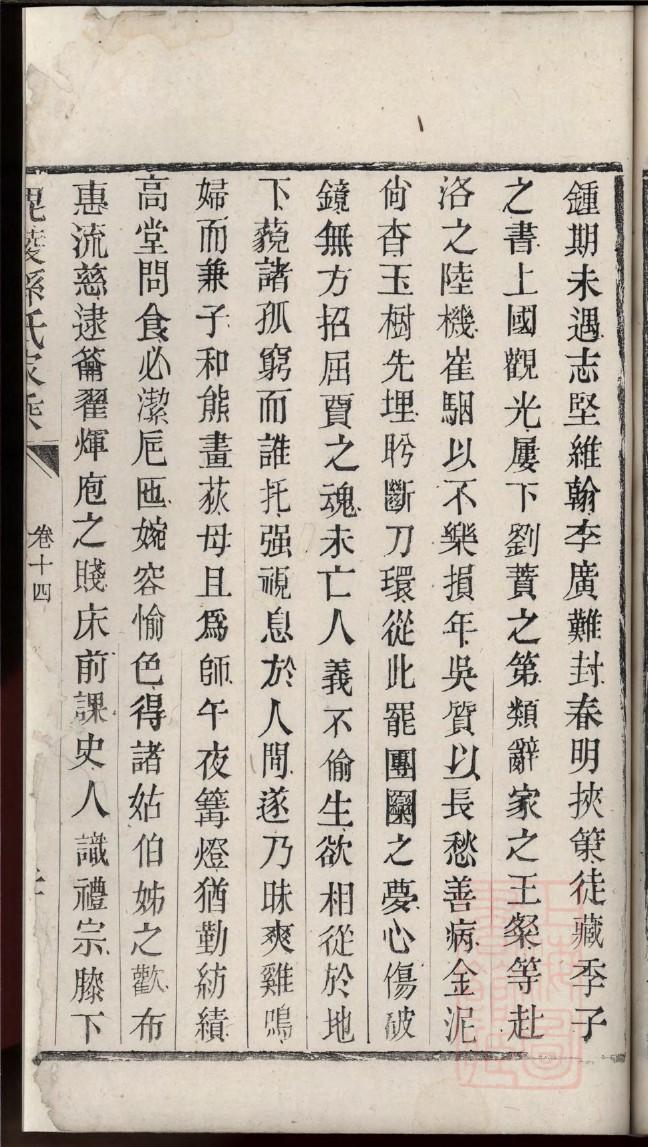 鍾期未遇志堅維翰李廣難封春明挾策徒藏季子
之書上國觀光屢下劉蕡之第類辭家之王粲等赴
洛之陸機崔駰以不樂損年吳質以長愁善病金泥
尙杳玉樹先埋肹斷刀環從此罷團圞之夢心傷破
鏡無方招屈賈之魂未亡人義不偷生欲相從於地
下藐諸孤窮而誰托强視息於人間遂乃昧爽雞鳴
婦而兼子和熊畫荻母且爲師午夜篝燈猶勤紡績
高堂問食必潔卮匜婉容愉色得諸姑伯姊之歡布
惠流慈逮籥翟煇庖之賤床前課史人識禮宗膝下
毘陵孫氏家乘
卷十四